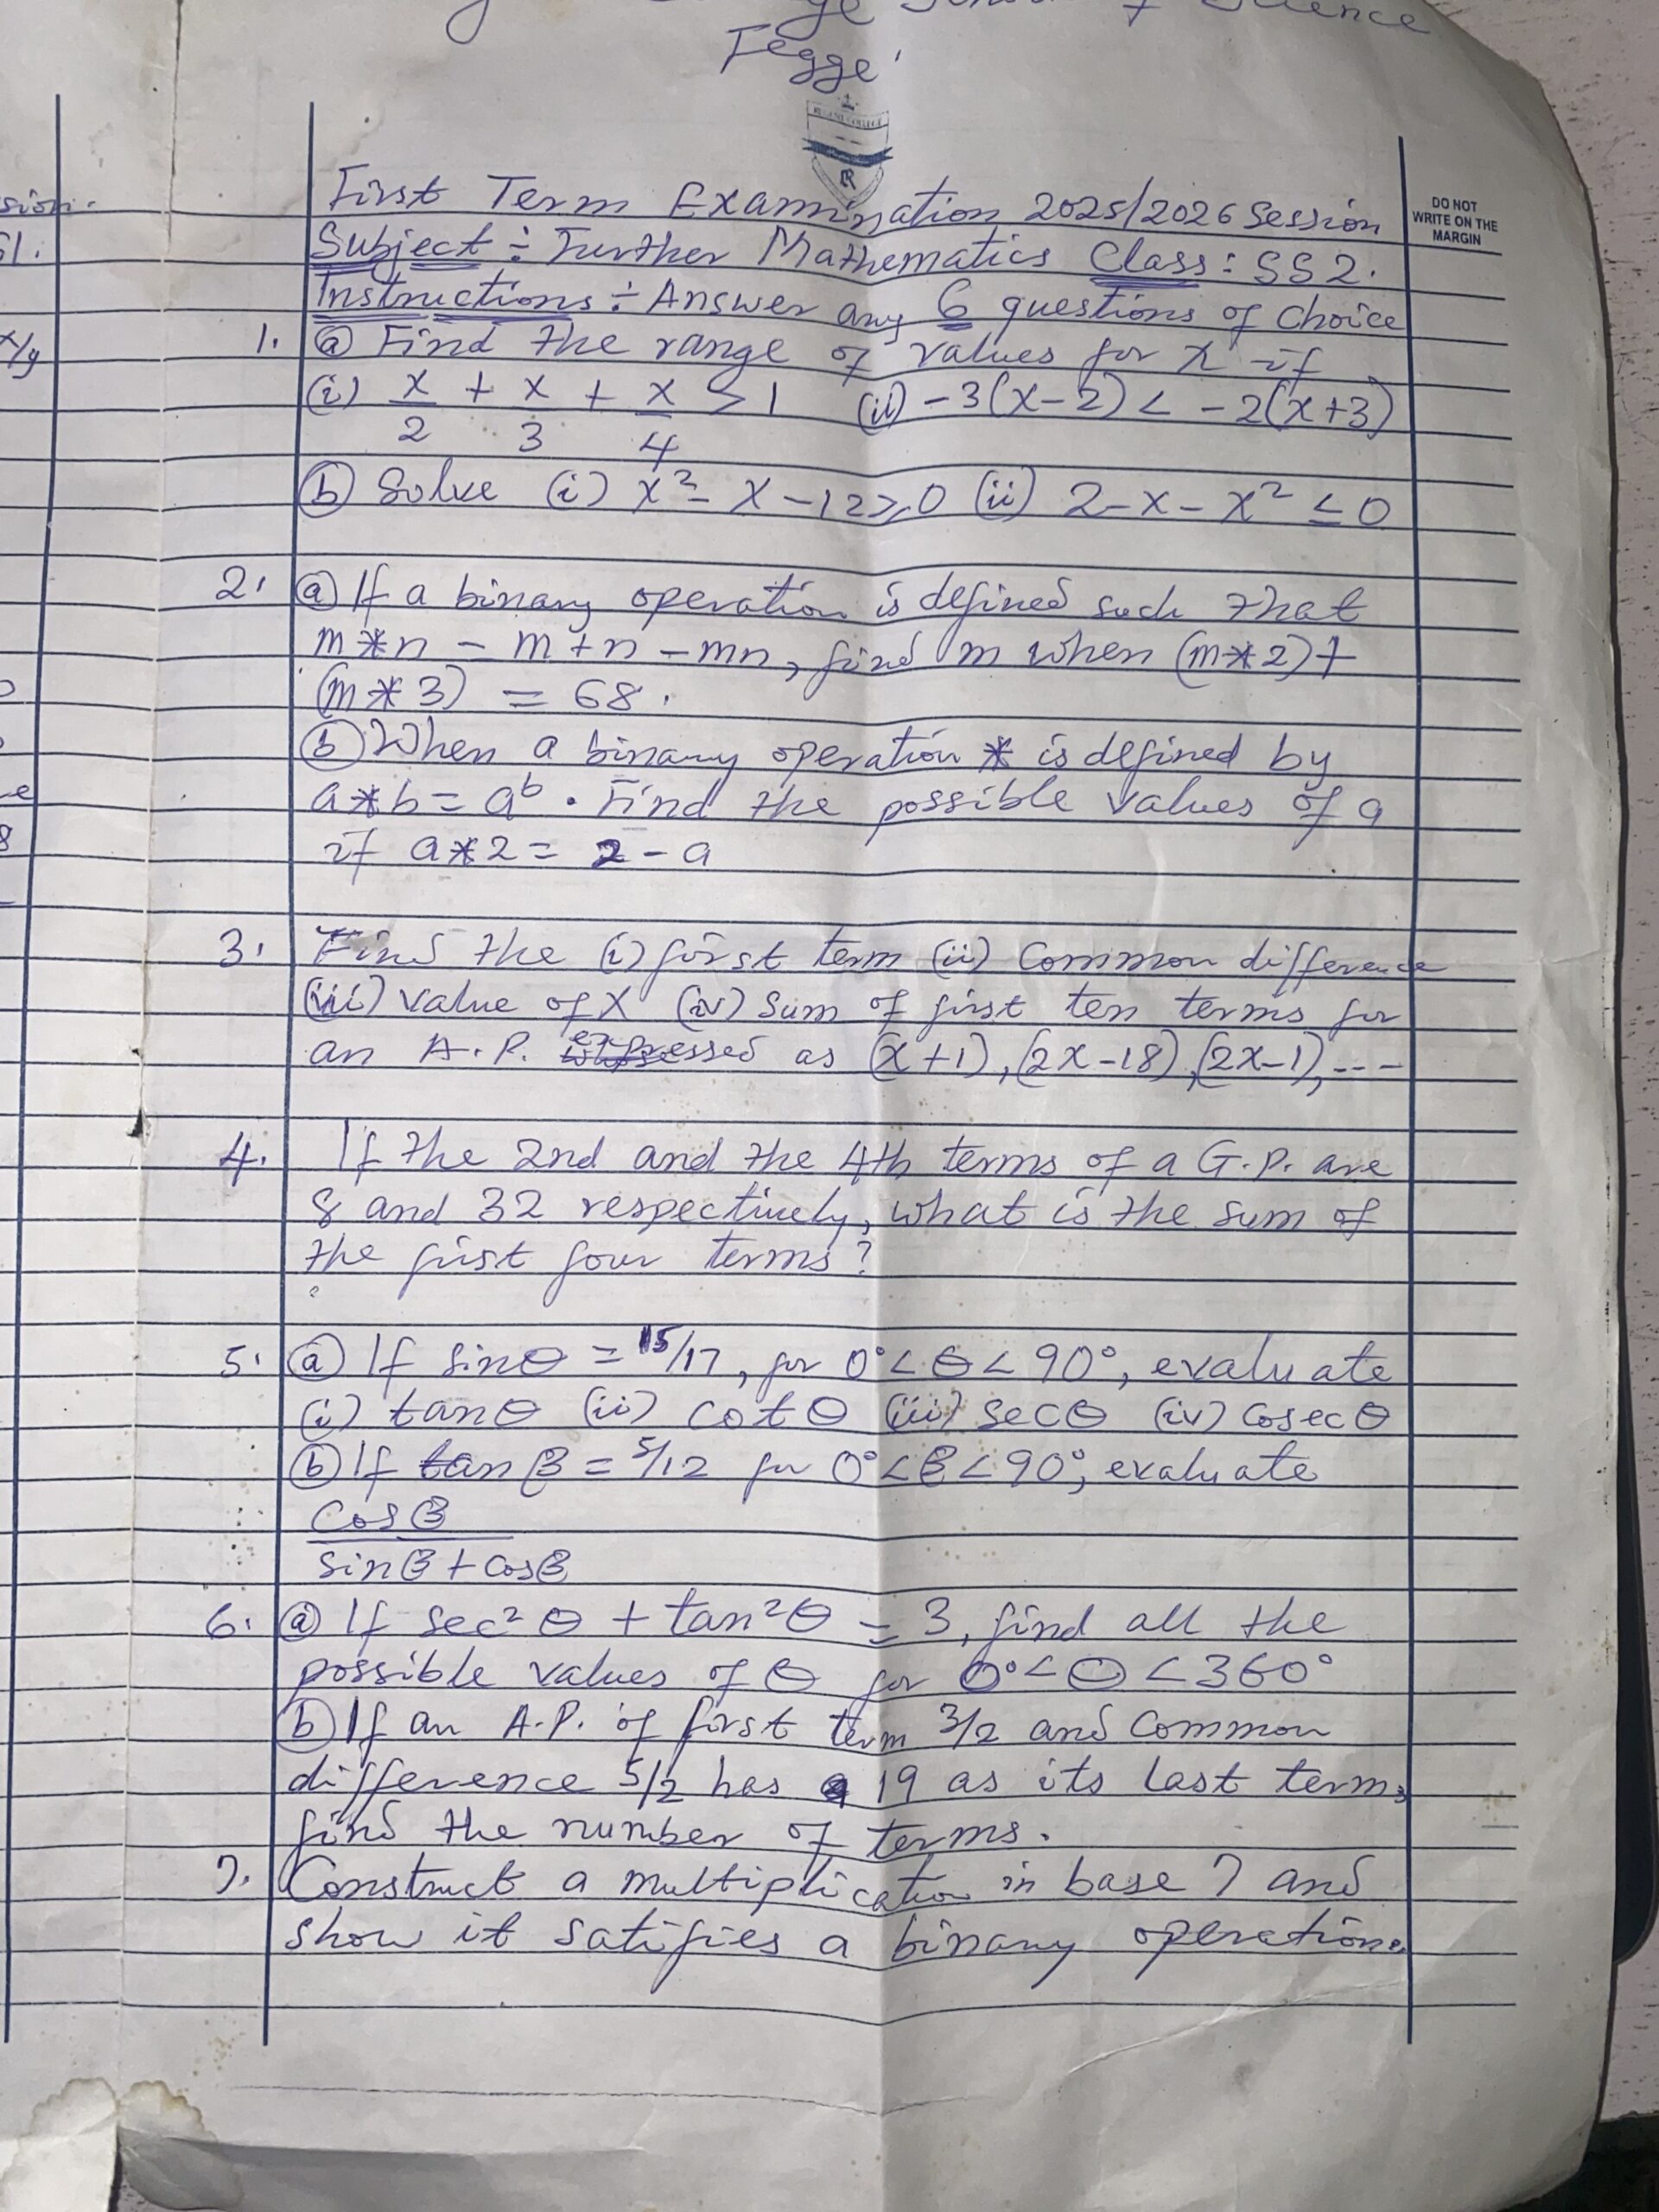 Science
Fegge
First Term Examination 2025/2026 Session
Subject :- Further Mathematics Class: SS2.
Instructions :- Answer any 6 questions of choice
1. (a) Find the range of values for x if
(i) x/2 + x/3 + x/4 > 1 (ii) -3(x-2) < -2(x+3)
(b) Solve (i) x² - x - 12 ≥ 0 (ii) 2 - x - x² ≤ 0
2. (a) If a binary operation is defined such that
m*n = m + n - mn, find m when (m*2) +
(m*3) = 68.
(b) When a binary operation * is defined by
a*b = a^b. Find the possible values of a
if a*2 = 2 - a
3. Find the (i) first term (ii) Common difference
(iii) value of x (iv) Sum of first ten terms for
an A.P. expressed as (x+1), (2x-18), (2x-1), ---
4. If the 2nd and the 4th terms of a G.P. are
8 and 32 respectively, what is the sum of
the first four terms?
5. (a) If sinθ = 15/17, for 0° < θ < 90°, evaluate
(i) tanθ (ii) cotθ (iii) secθ (iv) Cosecθ
(b) If tan β = 5/12 for 0° < β < 90°, evaluate
Cos β
Sin β + Cos β
6. (a) If sec²θ + tan²θ = 3, find all the
possible values of θ for 0° < θ < 360°
(b) If an A.P. of first term 3/2 and Common
difference 5/2 has 19 as its last term,
find the number of terms.
7. Construct a multiplication in base 7 and
show it satifies a binary operation.
DO NOT
WRITE ON THE
MARGIN